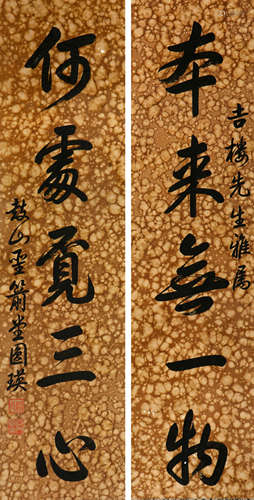 本来無一物
吉樓先生雅屬
何處覓三心
鼓山聖箭堂圓瑛